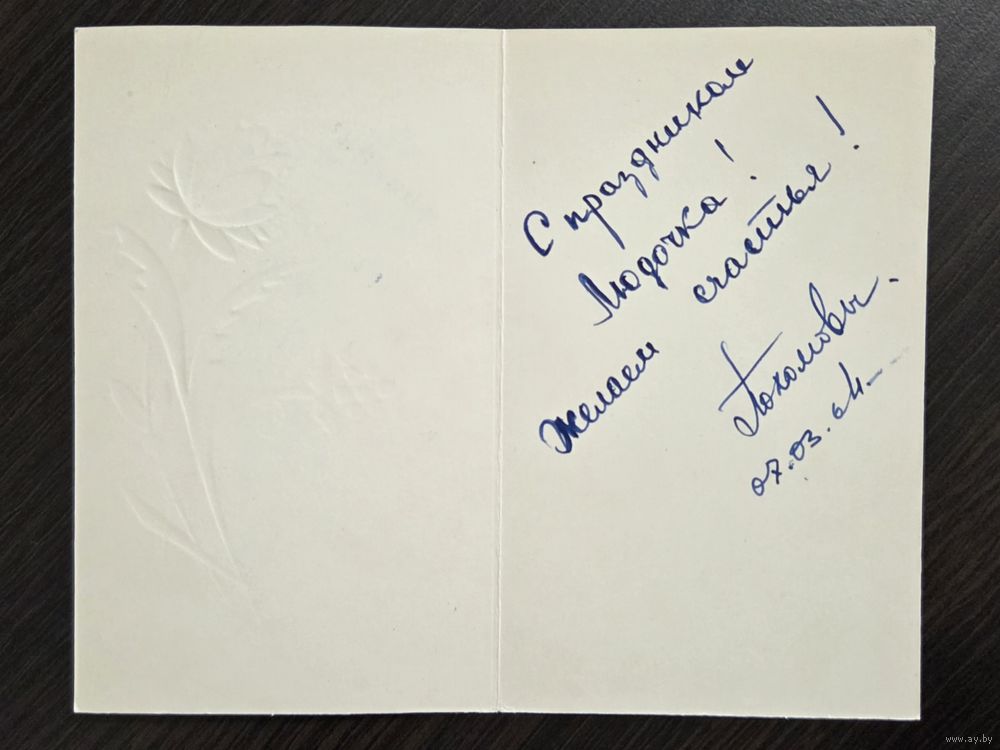 С праздником
Людочка!
желаем счастья!
Пахомовы.
07.03.64
www.ay.by